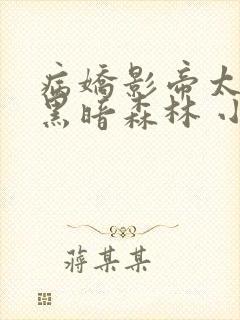 病嬌影帝太
黑暗森林 小
蔣某某